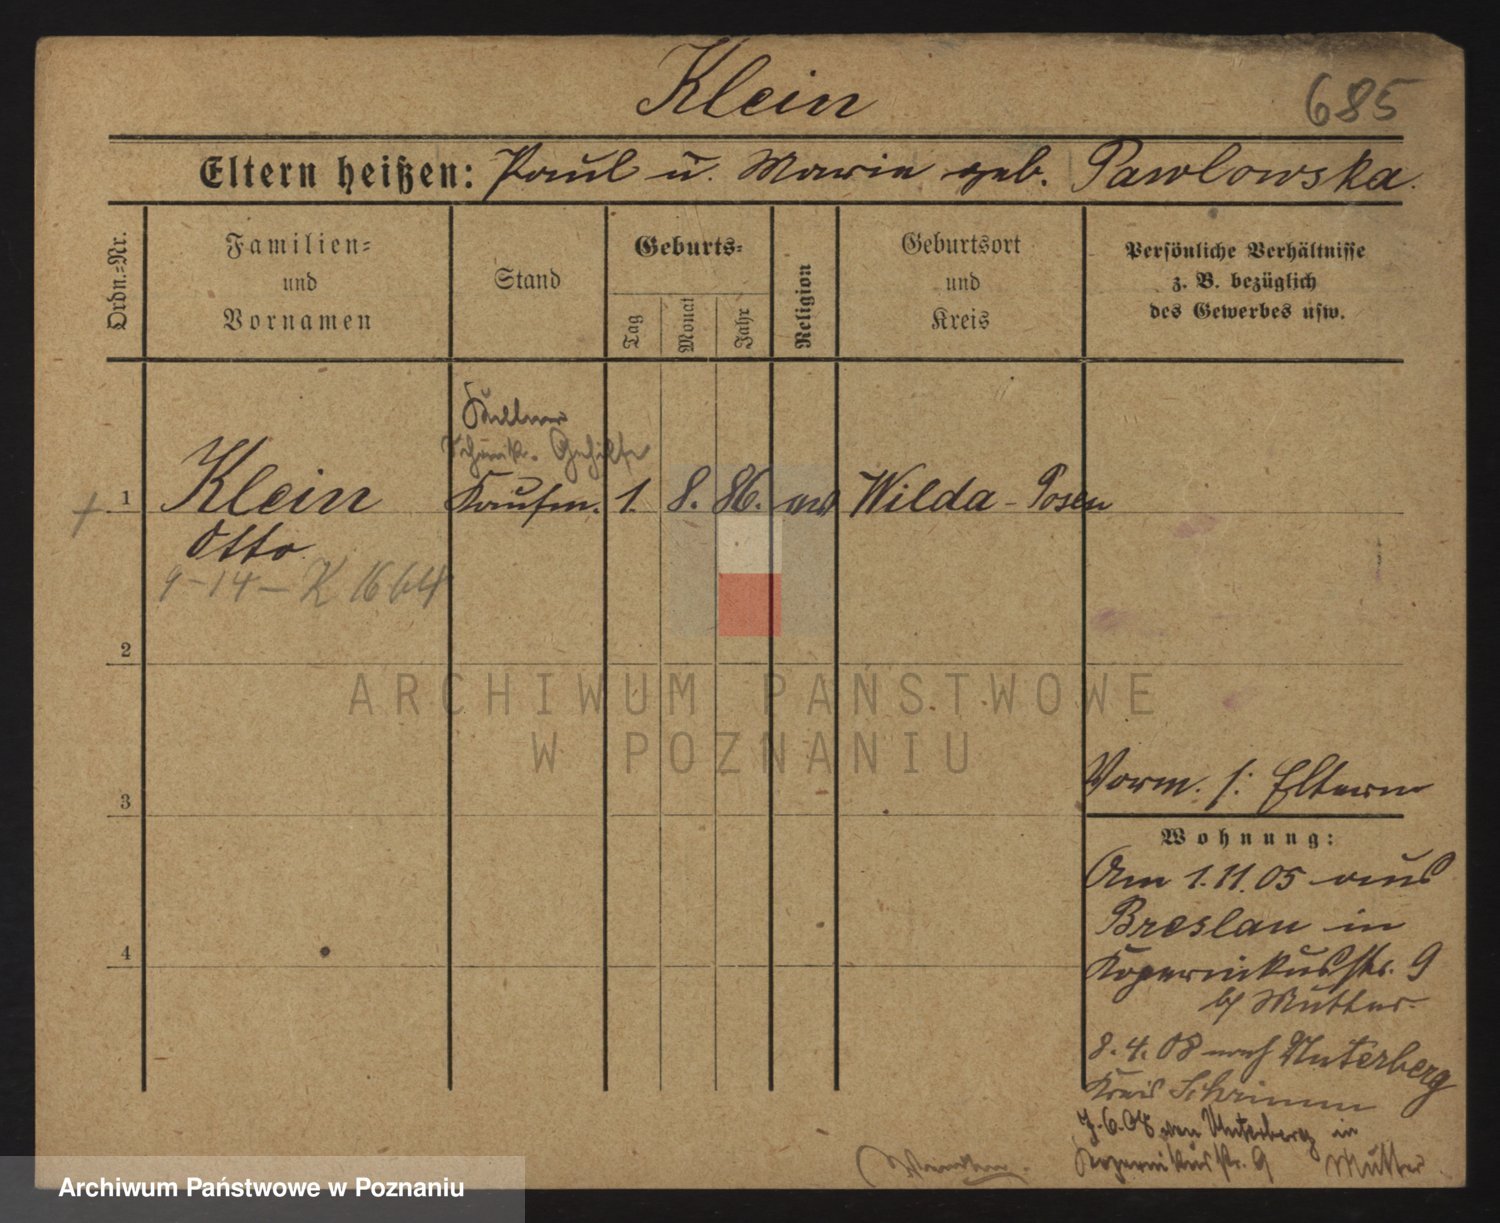 Klein
685
Eltern heißen: Paul u. Marie geb. Pawlowska.
Ordn.=Nr.
Familien=
und
Vornamen
Stand
Geburts=
Tag
Monat
Jahr
Religion
Geburtsort
und
Kreis
Persönliche Verhältnisse
z. B. bezüglich
des Gewerbes usw.
Kellner
Gehilfe
1 Klein Kaufm. 1. 8. 86. Wilda - Posen
Otto
9-14- K 1664
2
ARCHIWUM PAŃSTWOWE
W POZNANIU
Vorm. s: Eltern
3
Wohnung:
Am 1.11.05 aus
Breslau in
4
Kopernikusstr. 9
b/ Mutter
8.4.08 nach Unterberg
Kreis Schrimm
7.6.08 von Unterberg in
Kopernikusstr. 9 Mutter
Archiwum Państwowe w Poznaniu